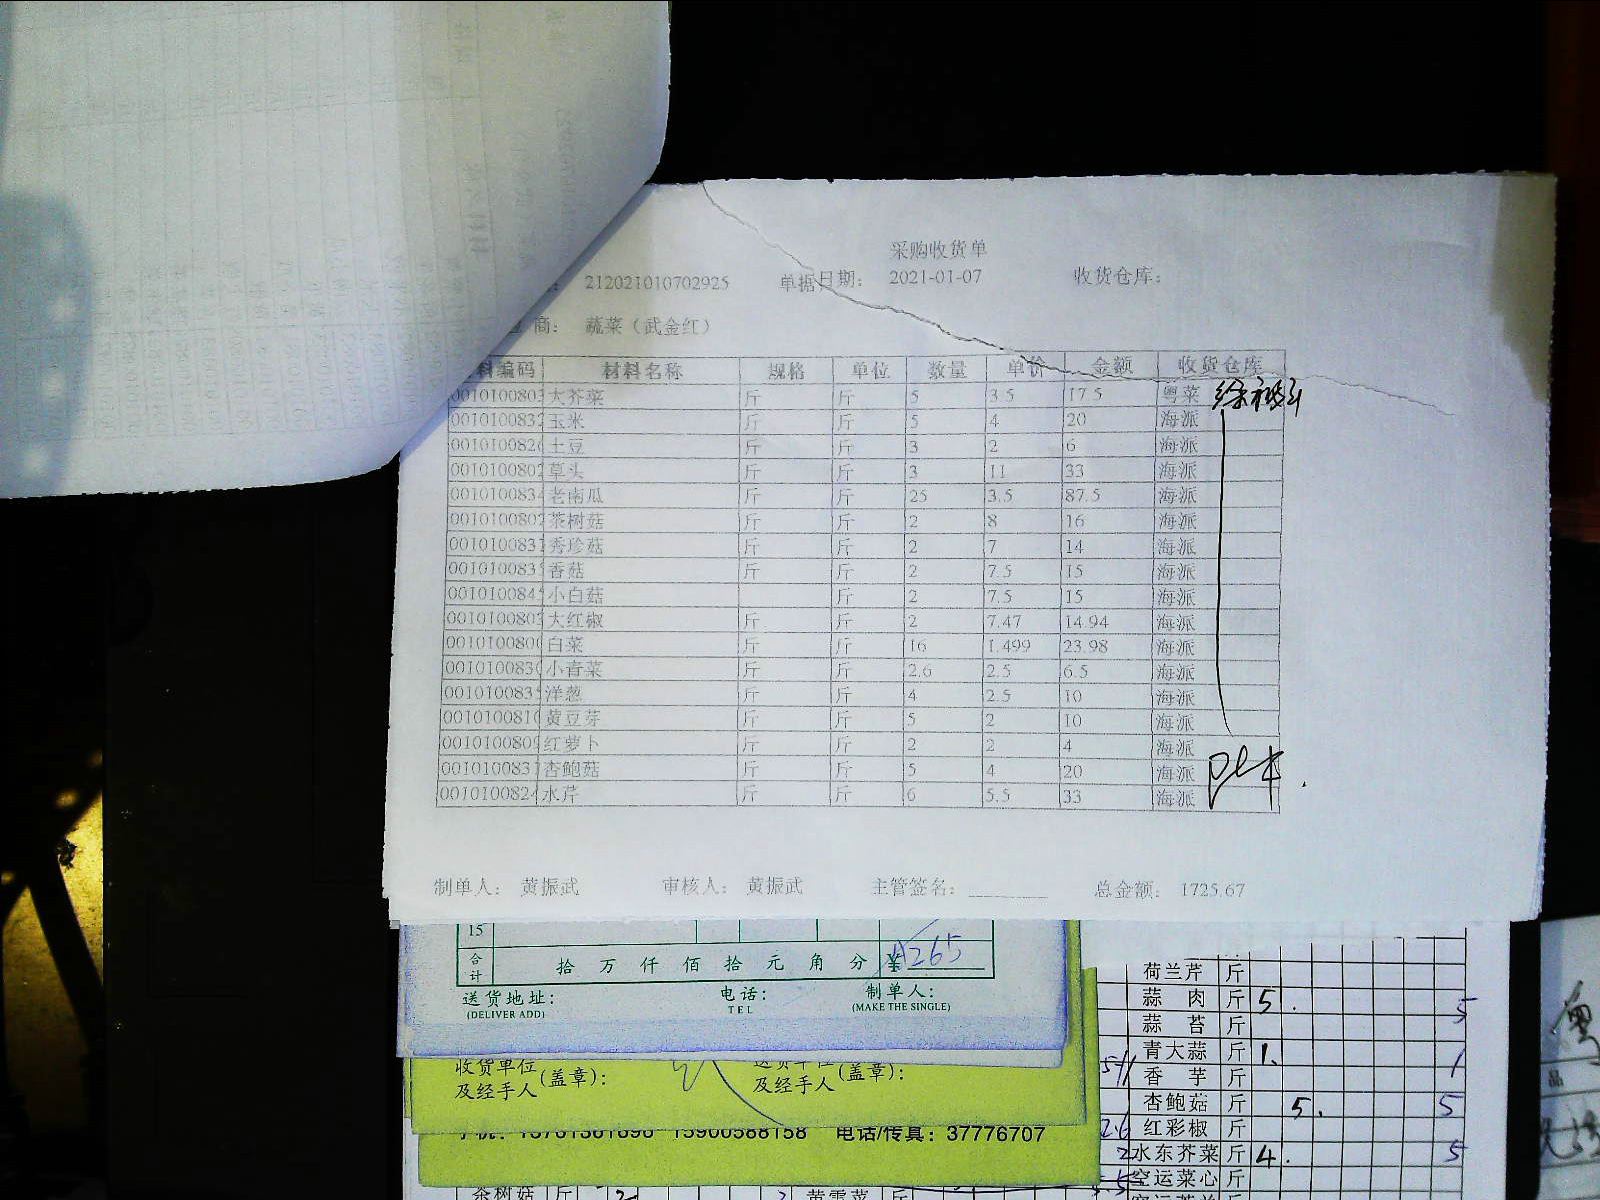 采购收货单
212021010702925 单据日期： 2021-01-07 收货仓库：
商： 蔬菜（武金红）
料编码 材料名称 规格 单位 数量 单价 金额 收货仓库
0010100803 大芥菜 斤 斤 5 3.5 17.5 粤菜
0010100832 玉米 斤 斤 5 4 20 海派
001010082 土豆 斤 斤 3 2 6 海派
0010100802 草头 斤 斤 3 11 33 海派
0010100834 老南瓜 斤 斤 25 3.5 87.5 海派
0010100802 茶树菇 斤 斤 2 8 16 海派
001010083 秀珍菇 斤 斤 2 7 14 海派
001010083 香菇 斤 斤 2 7.5 15 海派
001010084 小白菇 斤 2 7.5 15 海派
001010080 大红椒 斤 斤 2 7.47 14.94 海派
001010080 白菜 斤 斤 16 1.499 23.98 海派
001010083 小青菜 斤 斤 2.6 2.5 6.5 海派
001010083 洋葱 斤 斤 4 2.5 10 海派
001010081 黄豆芽 斤 斤 5 2 10 海派
001010080 红萝卜 斤 斤 2 2 4 海派
001010083 杏鲍菇 斤 斤 5 4 20 海派
001010082 水芹 斤 斤 6 5.5 33 海派
制单人： 黄振武 审核人： 黄振武 主管签名： 总金额： 1725.67
15
合计 拾 万 仟 佰 拾 元 角 分 ¥ 265
送货地址： 电话： 制单人：
(DELIVER ADD) TEL (MAKE THE SINGLE)
收货单位 送货单位
及经手人 (盖章)： 及经手人 (盖章)：
15900588158 电话/传真：37776707
荷兰芹 斤
蒜肉 斤 5. 5
蒜苔 斤
青大蒜 斤 1. 1
香芋 斤
杏鲍菇 斤 5. 5
红彩椒 斤
水东芥菜 斤 4. 5
空运菜心 斤
茶树菇 斤
品